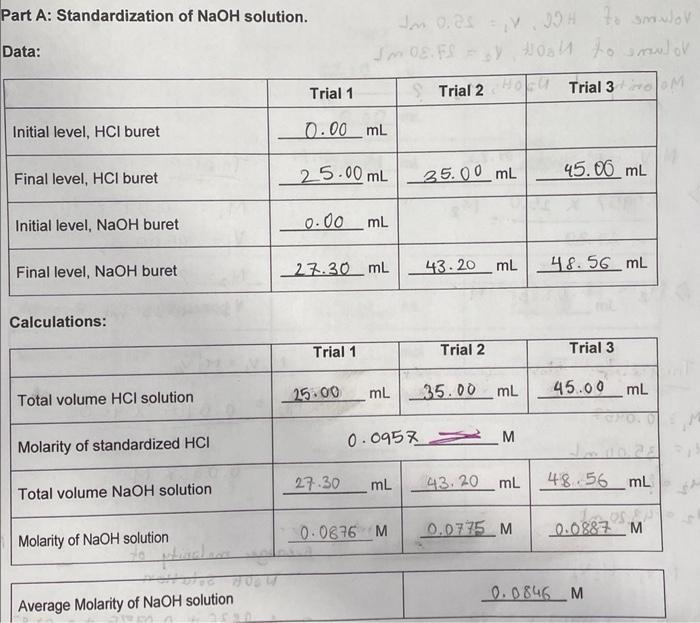 Part A: Standardization of NaOH solution.
Data:
Trial 1 Trial 2 Trial 3
Initial level, HCl buret 0.00 mL
Final level, HCl buret 25.00 mL 35.00 mL 45.00 mL
Initial level, NaOH buret 0.00 mL
Final level, NaOH buret 27.30 mL 43.20 mL 48.56 mL
Calculations:
Trial 1 Trial 2 Trial 3
Total volume HCl solution 25.00 mL 35.00 mL 45.00 mL
Molarity of standardized HCl 0.0957 M
Total volume NaOH solution 27.30 mL 43.20 mL 48.56 mL
Molarity of NaOH solution 0.0876 M 0.0775 M 0.0887 M
Average Molarity of NaOH solution 0.0846 M